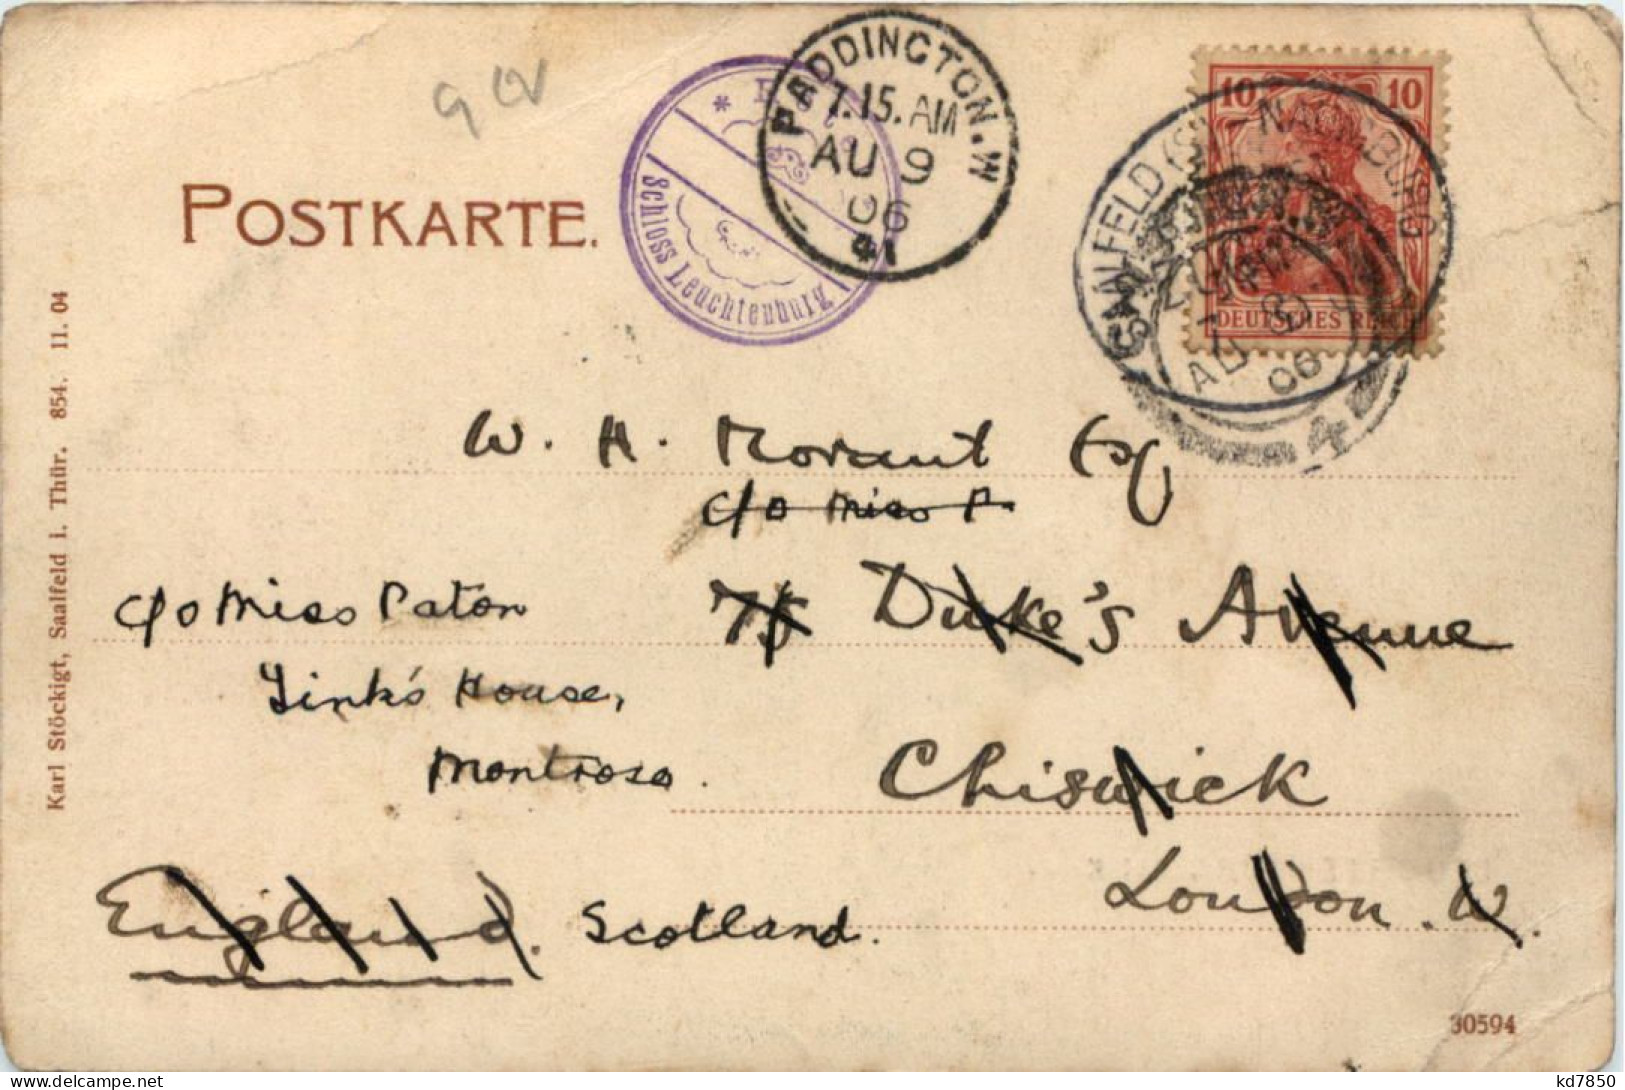 POSTKARTE.
PADDINGTON. W
7.15. AM
AU 9
06
41
Schloss Leuchtenburg
10 10
DEUTSCHES REICH
SAALFELD
NAUMBURG
AU
06
4
W. H. Morant Esq
c/o Miss P.
75 Duke's Avenue
Chiswick
London. W.
England.
c/o Miss Paton
Link's House,
Montrose.
Scotland.
Karl Stöckigt, Saalfeld i. Thür. 854. 11. 04
30594
kd7850